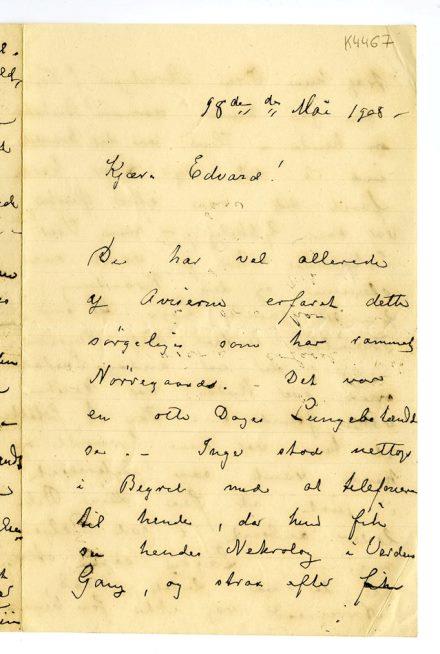 K4467
18 de Mai 1908 –
Kjære Edvard!
De har vel allerede
af Aviserne erfaret dette
sørgelige som har rammet
Nørregaards. – Det var
en otte Dages Lungebetændel
se. – Inga stod nettop
i Begreb med at telefonere
til hende, da hun fik
se hendes Nekrolog i Verdens
Gang, og strax efter